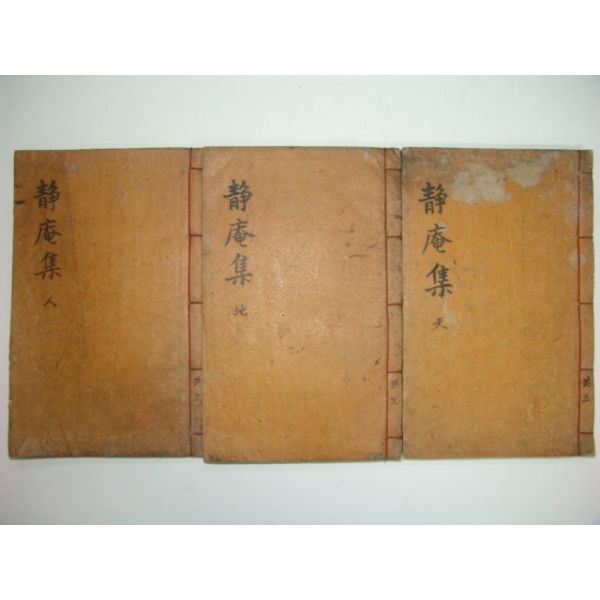 静庵集
天
共三
静庵集
地
共三
静庵集
人
共三